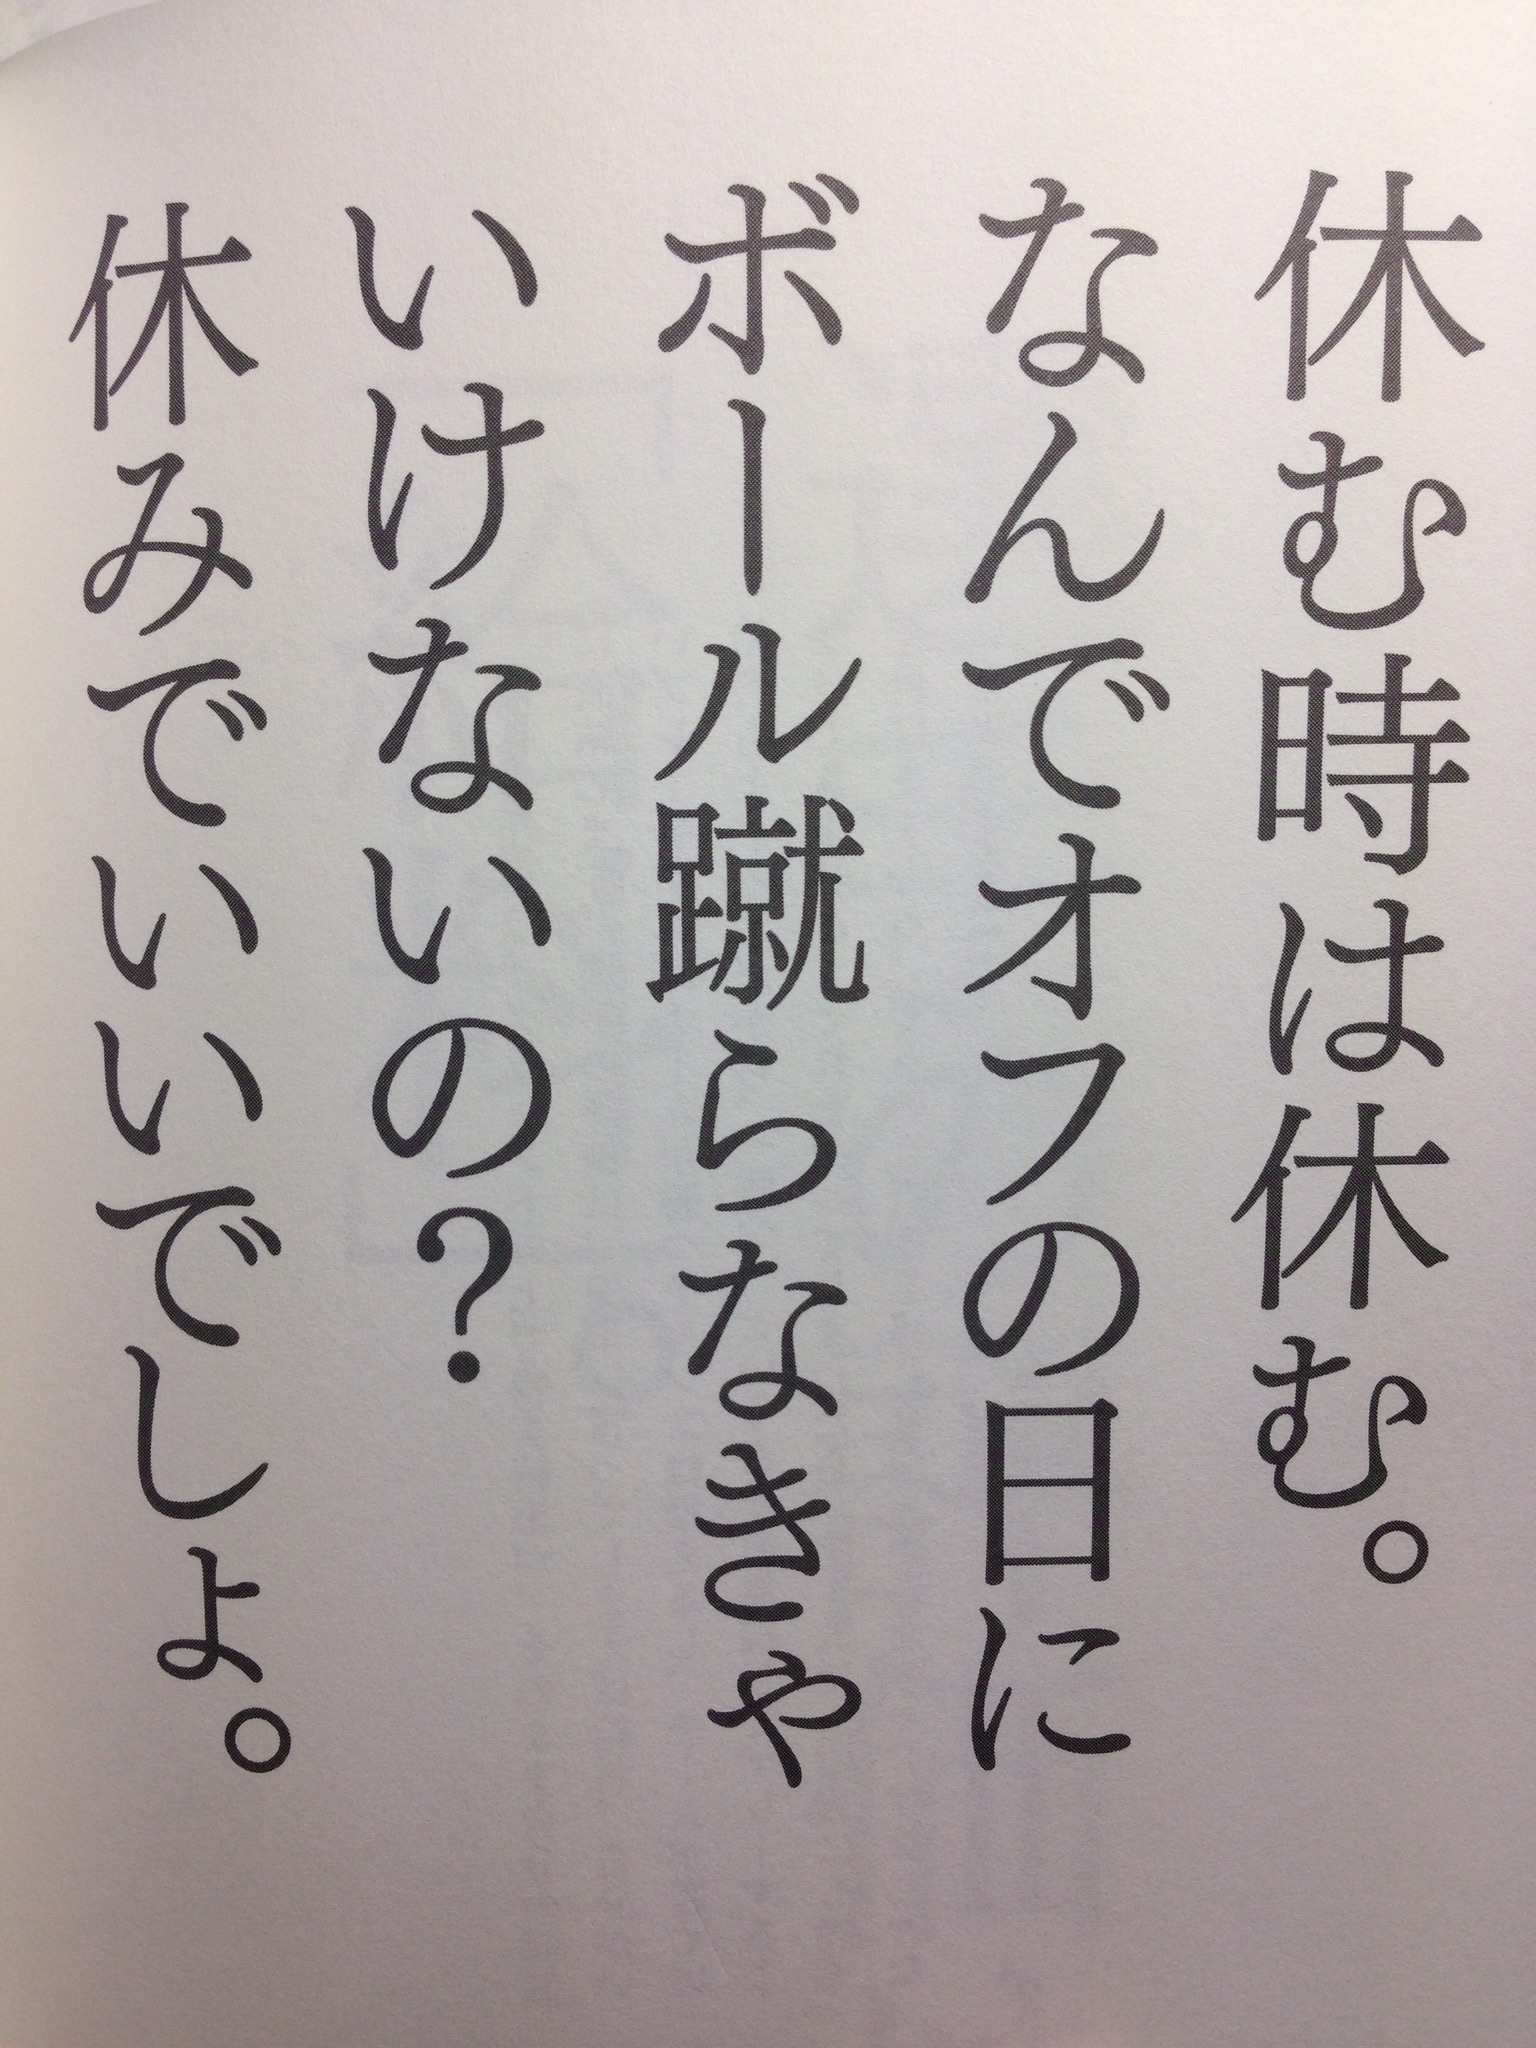 休む時は休む。
なんでオフの日に
ボール蹴らなきゃ
いけないの？
休みでいいでしょ。